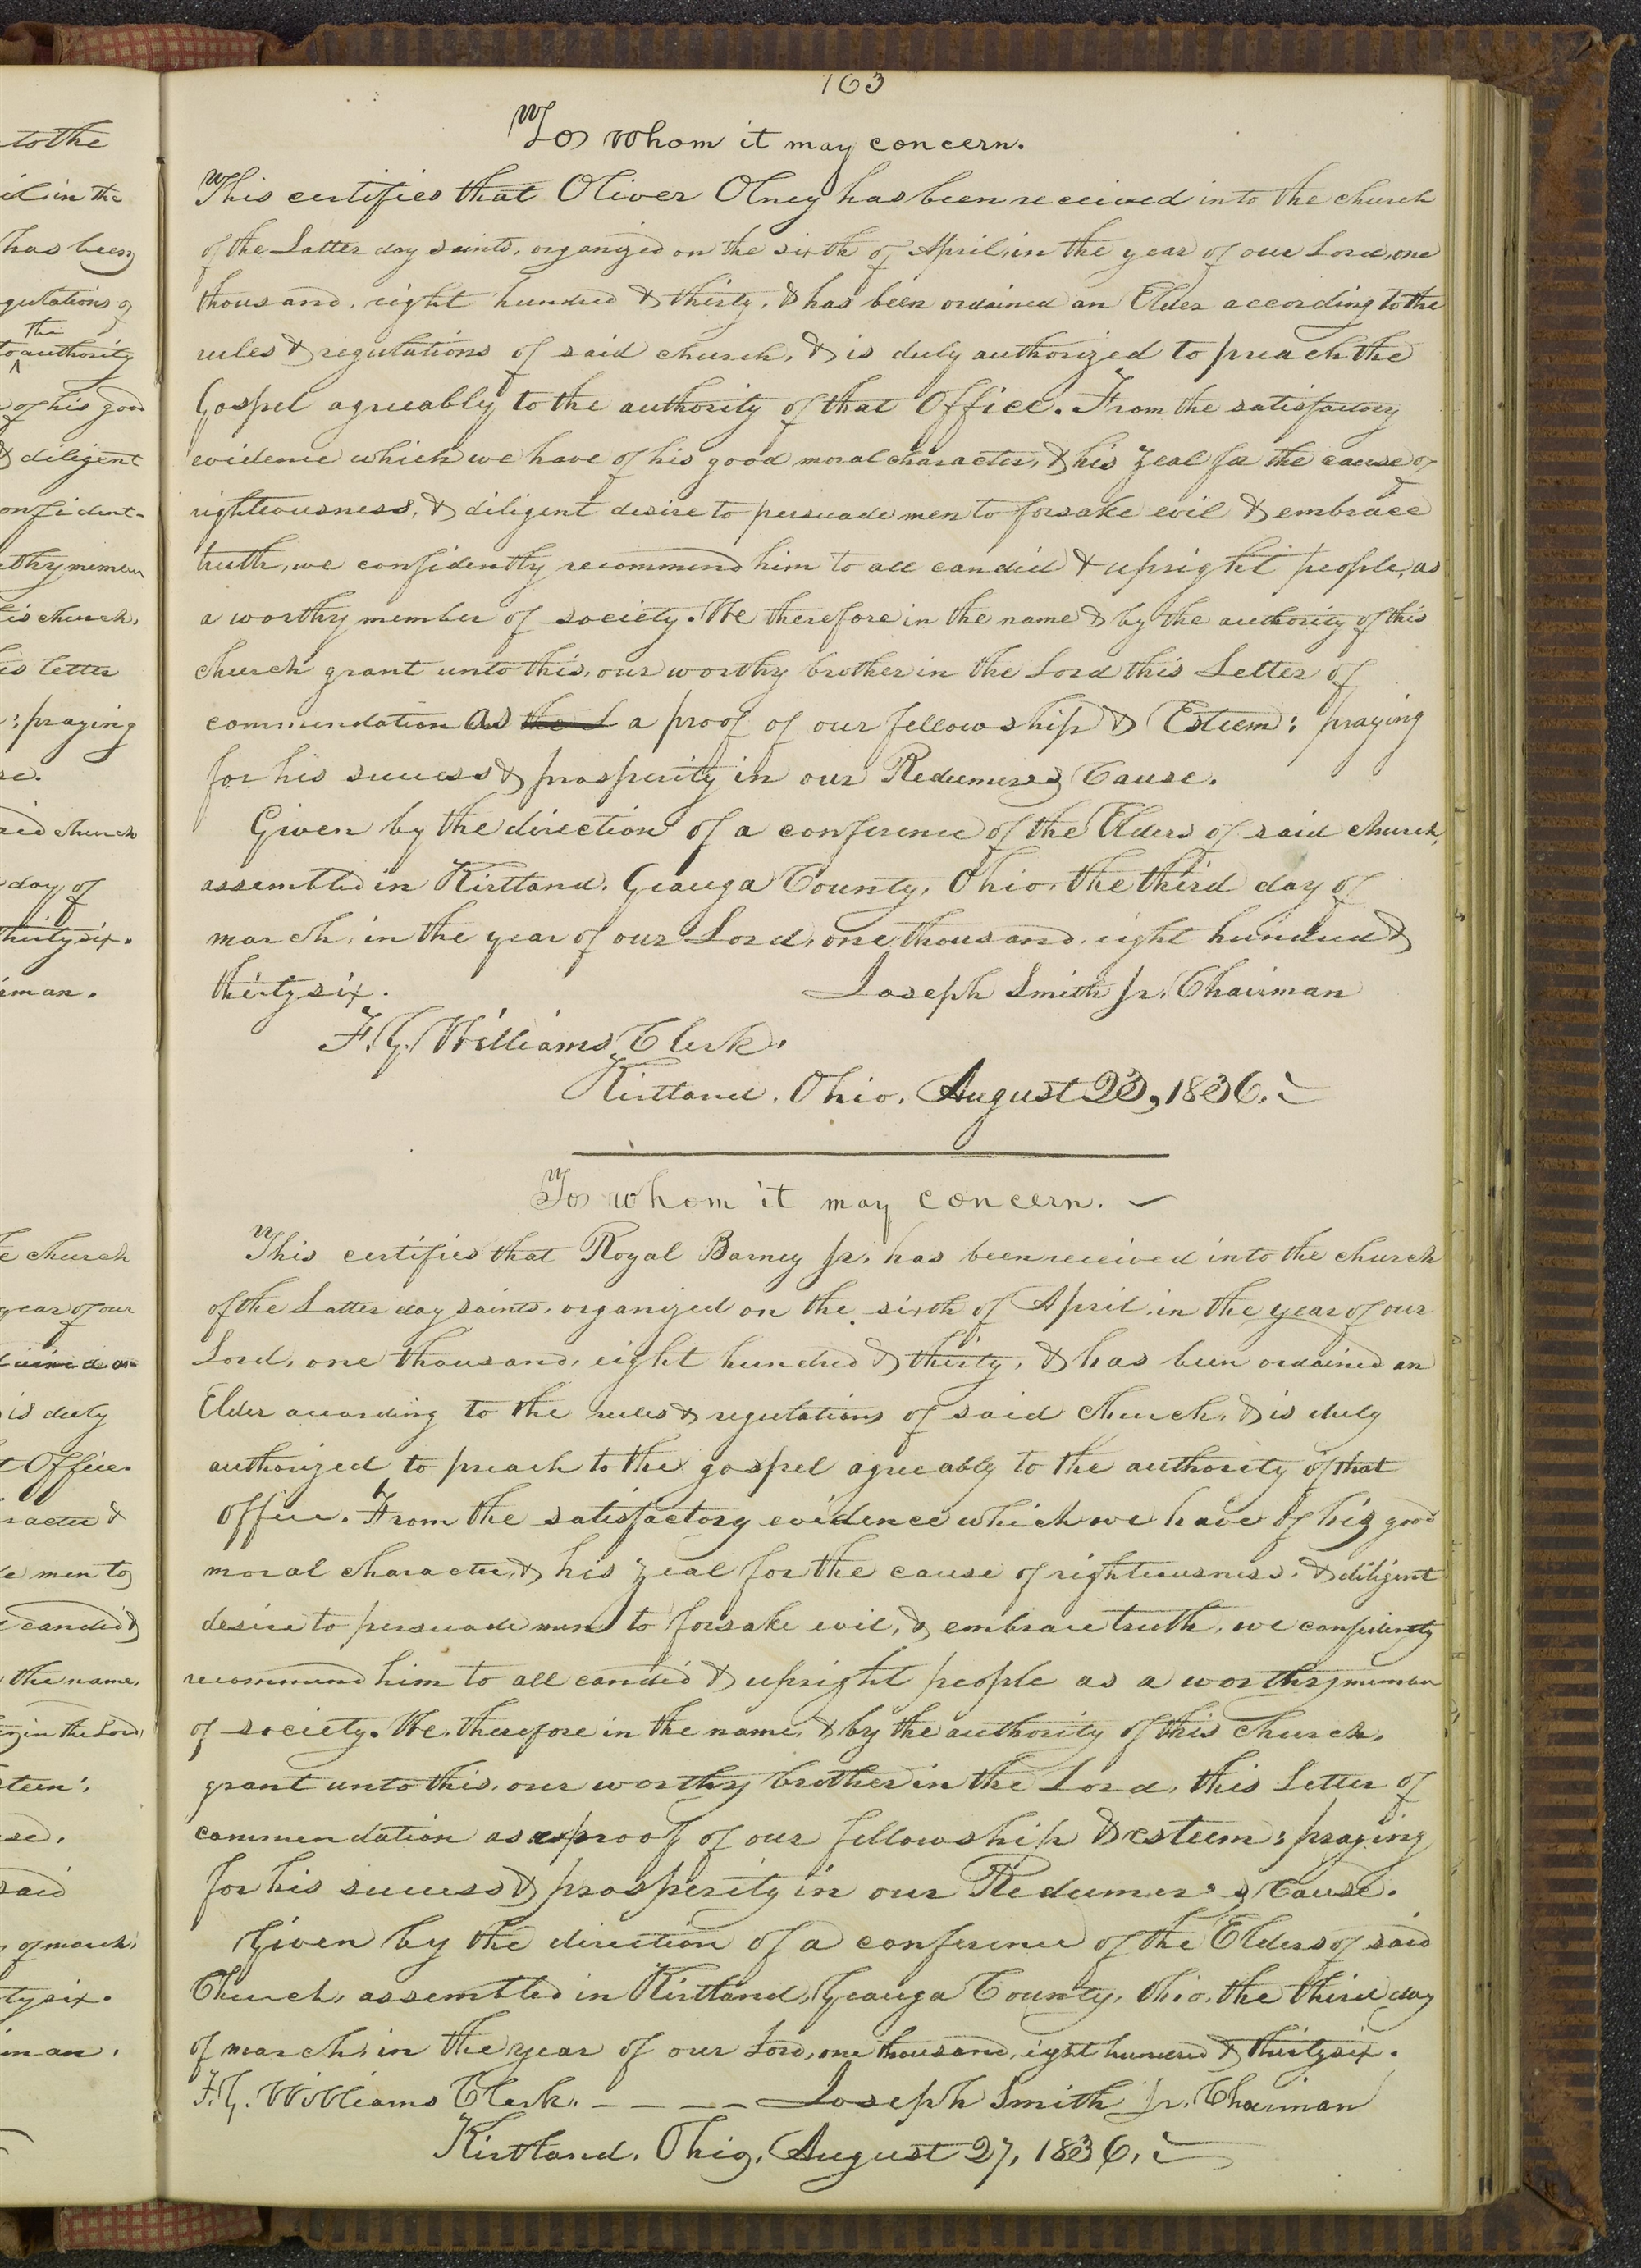 to the
il in the
has been
gulations of
the
to authority
of his good
& diligent
onfident-
thy member
is church,
is letter
: praying
se.
aid church
day of
thirty six.
irman.
e church
year of our
is duly
t Office.
racter &
e men to
candid &
the name,
in the Lord,
teem:
se.
said
of march,
ty six.
man.
163
To whom it may concern.
This certifies that Oliver Olney has been received into the church
of the Latter day saints, organized on the sixth of April, in the year of our Lord, one
thousand, eight hundred & thirty, & has been ordained an Elder according to the
rules & regulations of said church, & is duly authorized to preach the
Gospel agreeably to the authority of that Office. From the satisfactory
evidence which we have of his good moral character, & his zeal for the cause of
righteousness, & diligent desire to persuade men to forsake evil & embrace
truth, we confidently recommend him to all candid & upright people, as
a worthy member of society. We therefore in the name & by the authority of this
church grant unto this, our worthy brother in the Lord this Letter of
commendation as a proof of our fellowship & Esteem: praying
for his success & prosperity in our Redeemers Cause.
Given by the direction of a conference of the Elders of said church,
assembled in Kirtland, Geauga County, Ohio, the third day of
march, in the year of our Lord, one thousand, eight hundred &
thirty six. Joseph Smith Jr. Chairman
F. G. Williams Clerk.
Kirtland, Ohio, August 23, 1836.
To whom it may concern.
This certifies that Royal Barney Jr. has been received into the church
of the Latter day saints, organized on the sixth of April, in the year of our
Lord, one thousand, eight hundred & thirty, & has been ordained an
Elder according to the rules & regulations of said church, & is duly
authorized to preach to the gospel agreeably to the authority of that
office. From the satisfactory evidence which we have of his good
moral character, & his zeal for the cause of righteousness, & diligent
desire to persuade men to forsake evil, & embrace truth, we confidently
recommend him to all candid & upright people as a worthy member
of society. We, therefore in the name, & by the authority of this church,
grant unto this, our worthy brother in the Lord, this Letter of
commendation as a proof of our fellowship & esteem: praying
for his success & prosperity in our Redeemer's Cause.
Given by the direction of a conference of the Elders of said
Church, assembled in Kirtland, Geauga County, Ohio, the third day
of march, in the year of our Lord, one thousand, eight hundred & thirty six.
F. G. Williams Clerk. - - - - Joseph Smith Jr. Chairman
Kirtland, Ohio, August 27, 1836.